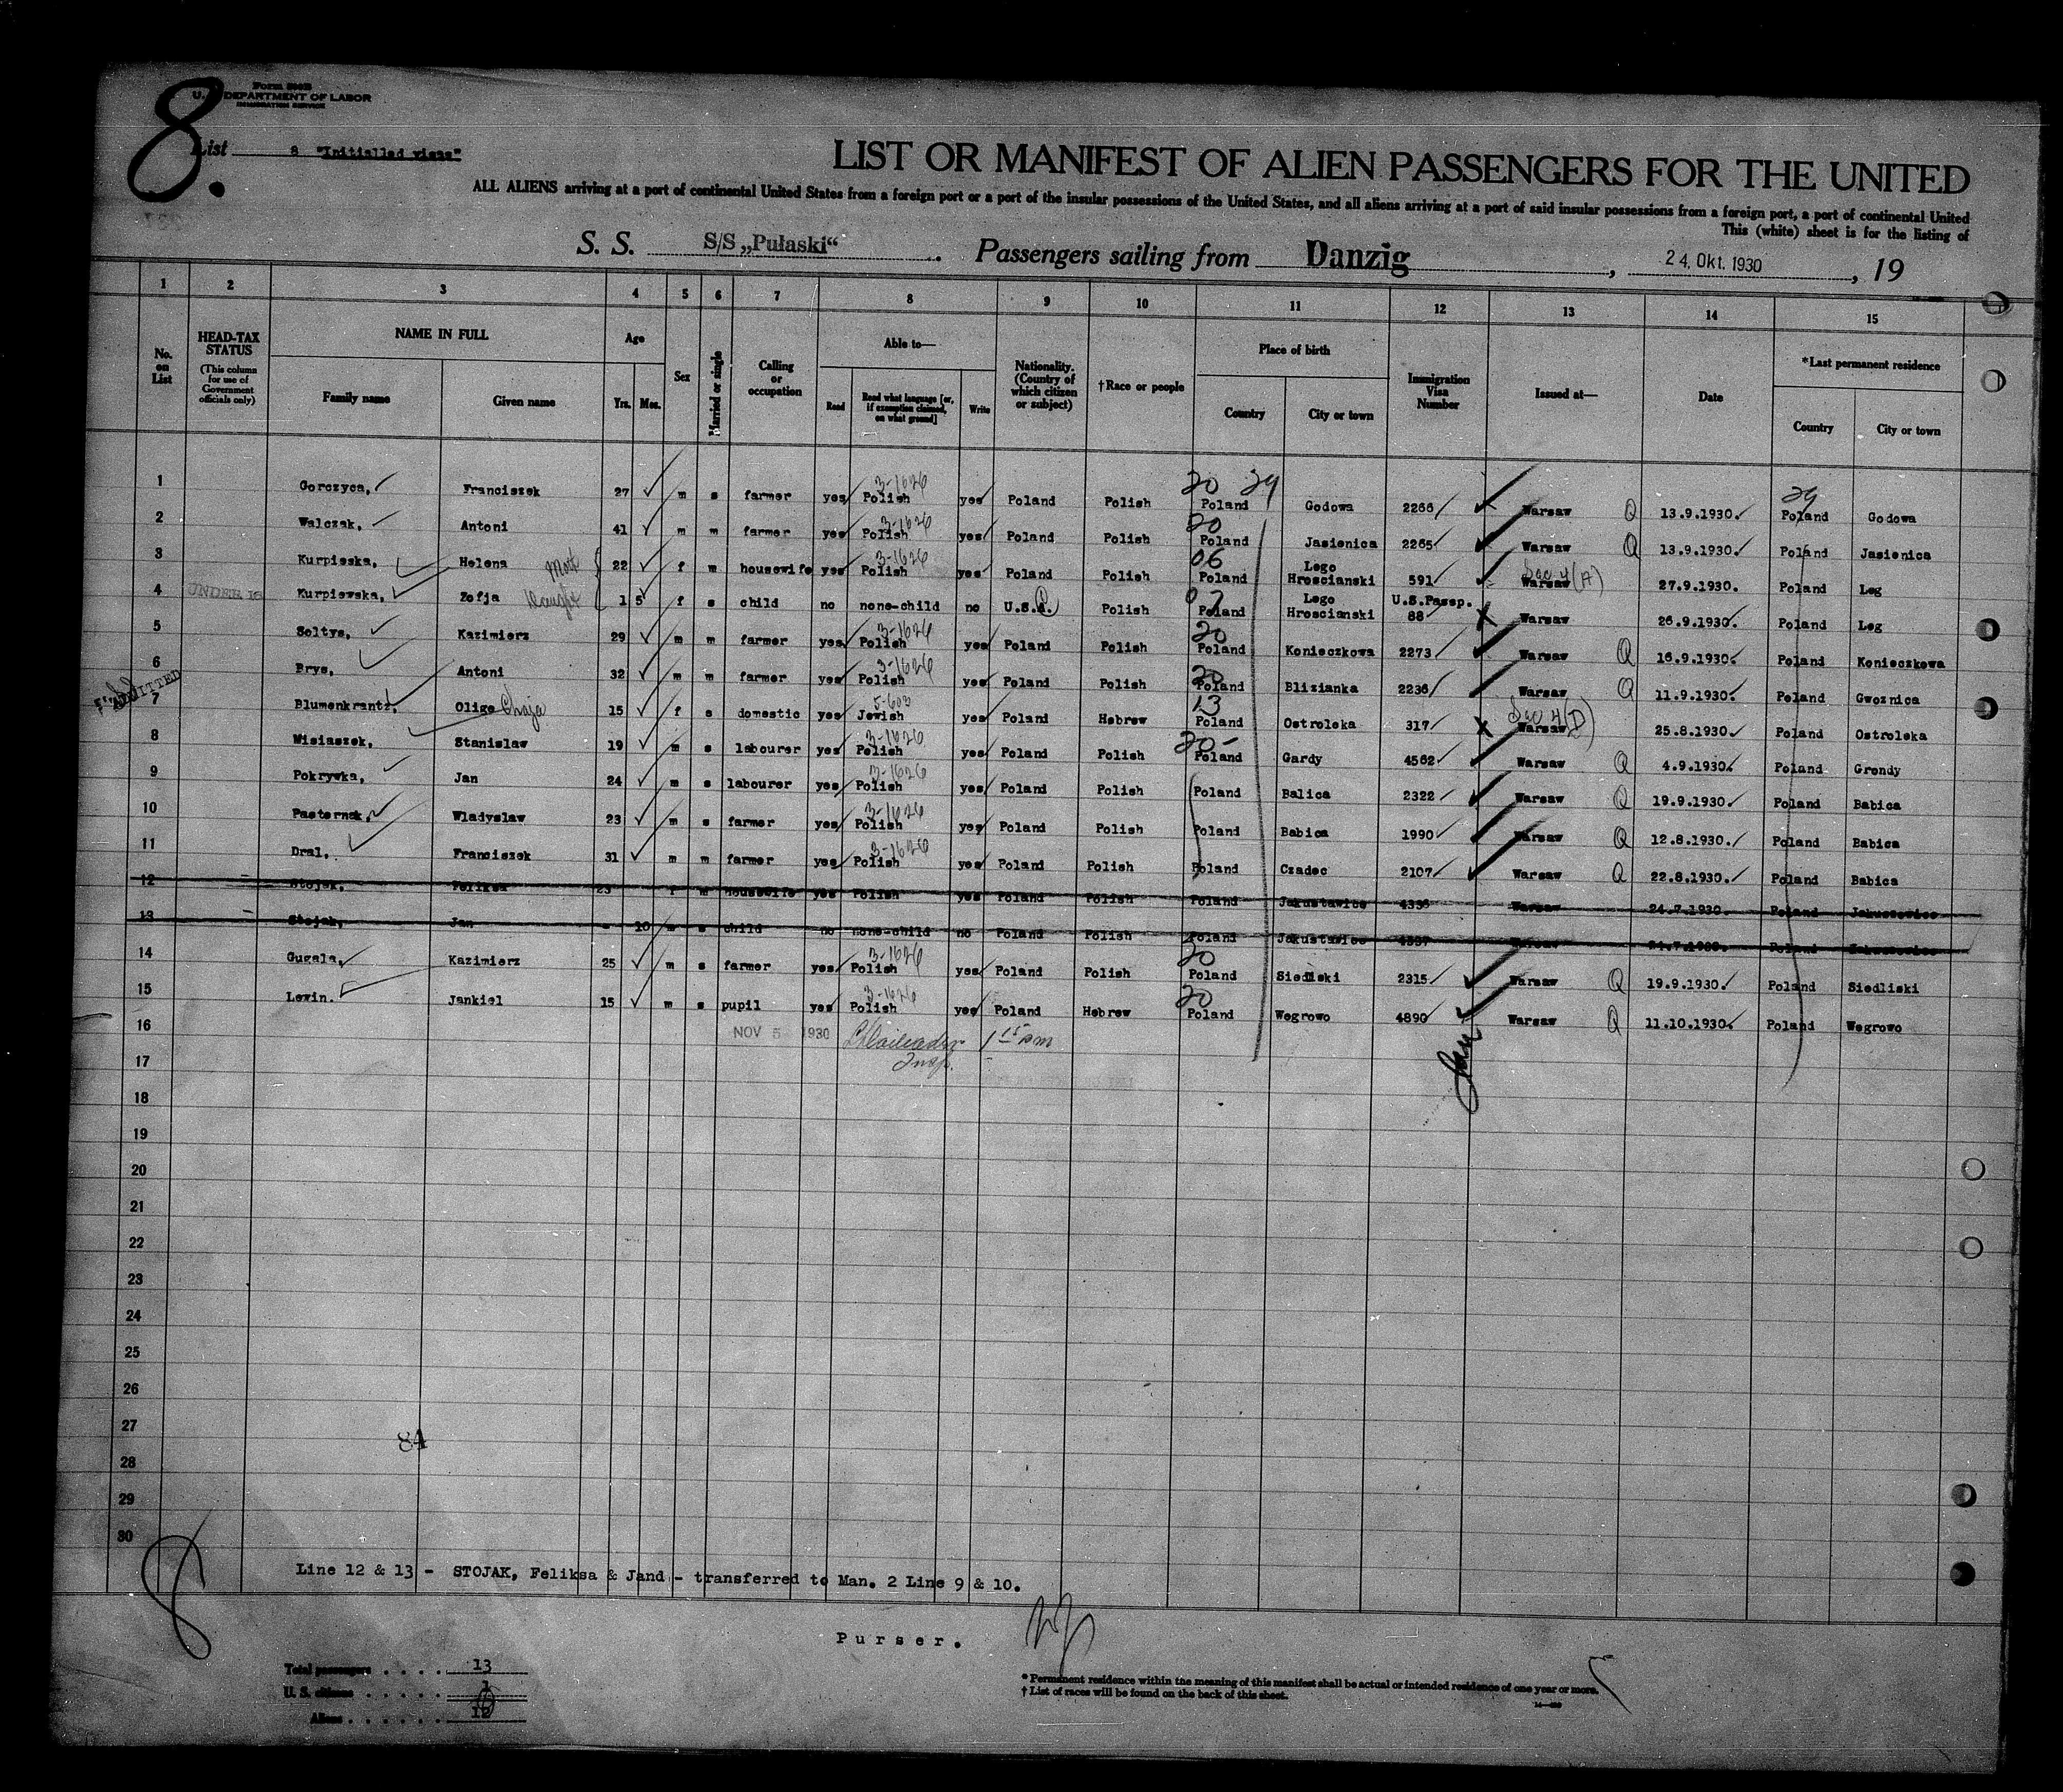 8.
Form 500B
U. S. DEPARTMENT OF LABOR
IMMIGRATION SERVICE
List 8 "Initialled visas"
LIST OR MANIFEST OF ALIEN PASSENGERS FOR THE UNITED
ALL ALIENS arriving at a port of continental United States from a foreign port or a port of the insular possessions of the United States, and all aliens arriving at a port of said insular possessions from a foreign port, a port of continental United
This (white) sheet is for the listing of
S. S. S/S „Pułaski“. Passengers sailing from Danzig, 24. Okt. 1930, 19
1 2 3 4 5 6 7 8 9 10 11 12 13 14 15
No. on List
HEAD-TAX STATUS (This column for use of Government officials only)
NAME IN FULL Family name Given name
Age Yrs. Mos.
Sex
Married or single
Calling or occupation
Able to— Read Read what language [or, if exemption claimed, on what ground] Write
Nationality. (Country of which citizen or subject)
†Race or people
Place of birth Country City or town
Immigration Visa Number
Issued at—
Date
*Last permanent residence Country City or town
1 Gorczyca, Franciszek 27 m s farmer yes 3-1626 Polish yes Poland Polish 20 29 Poland Godowa 2266 Warsaw Q 13.9.1930. 29 Poland Godowa
2 Walczak, Antoni 41 m m farmer yes 3-1626 Polish yes Poland Polish 20 Poland Jasienica 2265 Warsaw Q 13.9.1930. Poland Jasienica
3 Kurpieska, Helena Moth 22 f m housewife yes 3-1626 Polish yes Poland Polish 06 Poland Lego Hroscianski 591 Sec 4(A) Warsaw 27.9.1930. Poland Leg
4 UNDER 16 Kurpiewska, Zofja Daught 1 5 f s child no none-child no U.S.A. Polish 07 Poland Lego Hroscianski U.S.Passp. 88 Warsaw 26.9.1930. Poland Leg
5 Soltys, Kazimierz 29 m m farmer yes 3-1626 Polish yes Poland Polish 20 Poland Konieczkowa 2273 Warsaw Q 16.9.1930. Poland Konieczkowa
6 Brys, Antoni 32 m m farmer yes 3-1626 Polish yes Poland Polish 20 Poland Blizianka 2236 Warsaw Q 11.9.1930. Poland Gwoznica
ADMITTED
7 Blumenkrantz, Olige Chaja 15 f s domestic yes 5-603 Jewish yes Poland Hebrew 13 Poland Ostroleka 317 Sec 4(D) Warsaw 25.8.1930. Poland Ostroleka
8 Misiaszek, Stanislaw 19 m s labourer yes 3-1626 Polish yes Poland Polish 20- Poland Gardy 4562 Warsaw Q 4.9.1930. Poland Grondy
9 Pokrywka, Jan 24 m s labourer yes 3-1626 Polish yes Poland Polish Poland Balica 2322 Warsaw Q 19.9.1930. Poland Babica
10 Pasternak, Wladyslaw 23 m s farmer yes 3-1626 Polish yes Poland Polish Poland Babica 1990 Warsaw Q 12.8.1930. Poland Babica
11 Dral, Franciszek 31 m m farmer yes 3-1626 Polish yes Poland Polish Poland Czadec 2107 Warsaw Q 22.8.1930. Poland Babica
12 Stojak, Feliksa 23 f m housewife yes Polish yes Poland Polish Poland Jakustawice 4336 Warsaw 24.7.1930. Poland Jakuszowice
13 Stojak, Jan - 10 m s child no none-child no Poland Polish Poland Jakustawice 4337 Warsaw 24.7.1930. Poland Jakuszowice
14 Gugala, Kazimierz 25 m s farmer yes 3-1626 Polish yes Poland Polish 20 Poland Siedliski 2315 Warsaw Q 19.9.1930. Poland Siedliski
15 Lewin. Jankiel 15 m s pupil yes 3-1626 Polish yes Poland Hebrew 20 Poland Wegrowo 4890 Warsaw Q 11.10.1930. Poland Wegrowo
16 NOV 5 1930 1 15 pm
Insp.
17
18
19
20
21
22
23
24
25
26
27
84
28
29
30
8
Line 12 & 13 - STOJAK, Feliksa & Jand - transferred to Man. 2 Line 9 & 10.
Purser.
Total passengers . . . . 13
U. S. citizens . . . . . 1
Aliens . . . . . . 12
* Permanent residence within the meaning of this manifest shall be actual or intended residence of one year or more.
† List of races will be found on the back of this sheet.